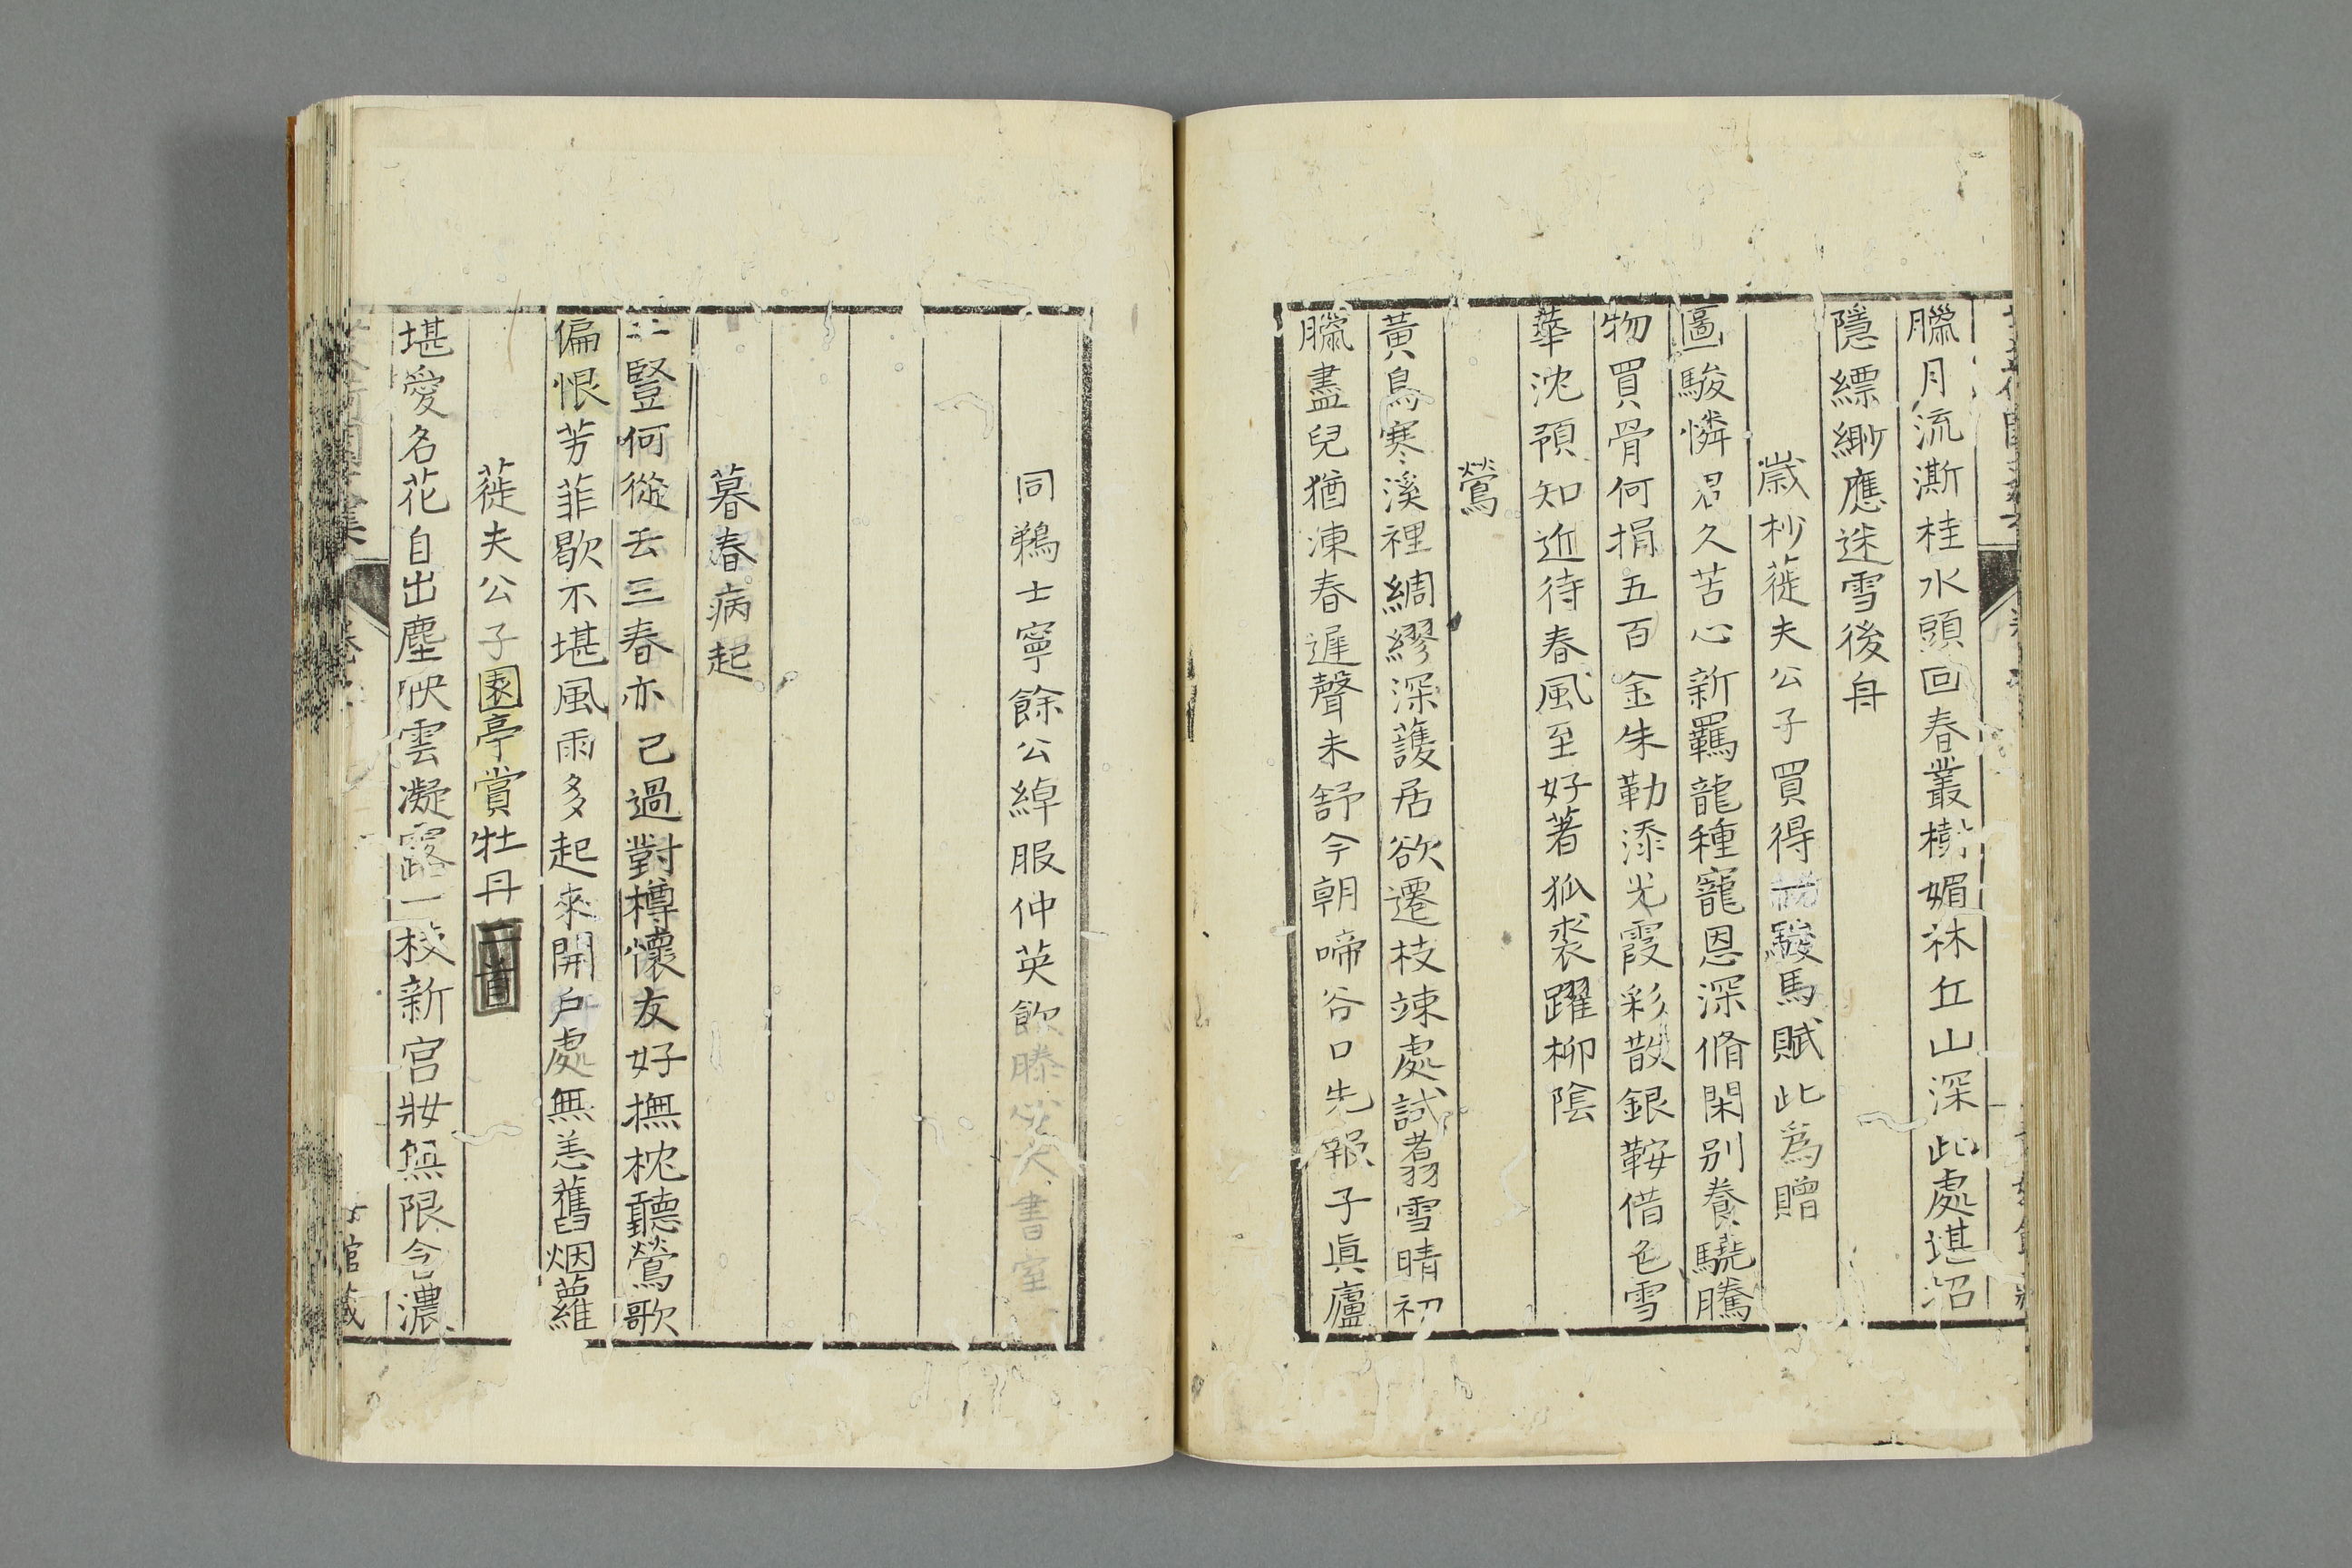 臘月流澌桂水頭回春叢樹媚林丘山深此處堪招
隱縹緲應迷雪後舟
歳杪蓰夫公子買得駿馬賦此爲贈
圖駿憐君久苦心新羈龍種寵恩深脩閑別養驍騰
物買骨何捐五百金朱勒添光霞彩散銀鞍借色雪
華沈預知近待春風至好著狐裘躍柳陰
鶯
黃鳥寒溪裡綢繆深護居欲遷枝竦處試翥雪晴初
臘盡兒猶凍春遲聲未舒今朝啼谷口先報子眞廬
同鵜士寧餘公綽服仲英飲滕 書室
暮春病起
二豎何從去三春亦已過對樽懷友好撫枕聽鶯歌
偏恨芳菲歇不堪風雨多起來開戶處無恙舊烟蘿
蓰夫公子園亭賞牡丹二首
堪愛名花自出塵 雲凝露一枝新宮妝無限含濃